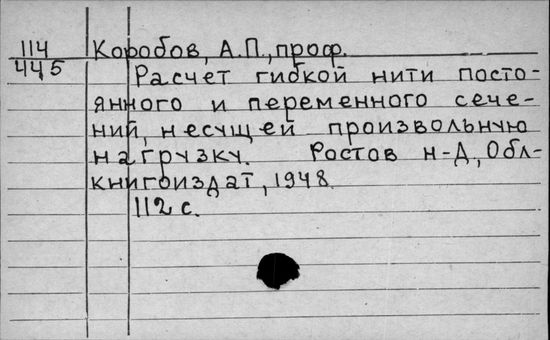 114 Коробов, А.П., проф.
445 Расчет гибкой нити посто-
янного и переменного сече-
ний, несущей произвольную
нагрузку. Ростов н-Д, Обл-
книгоиздат, 1948.
112 с.